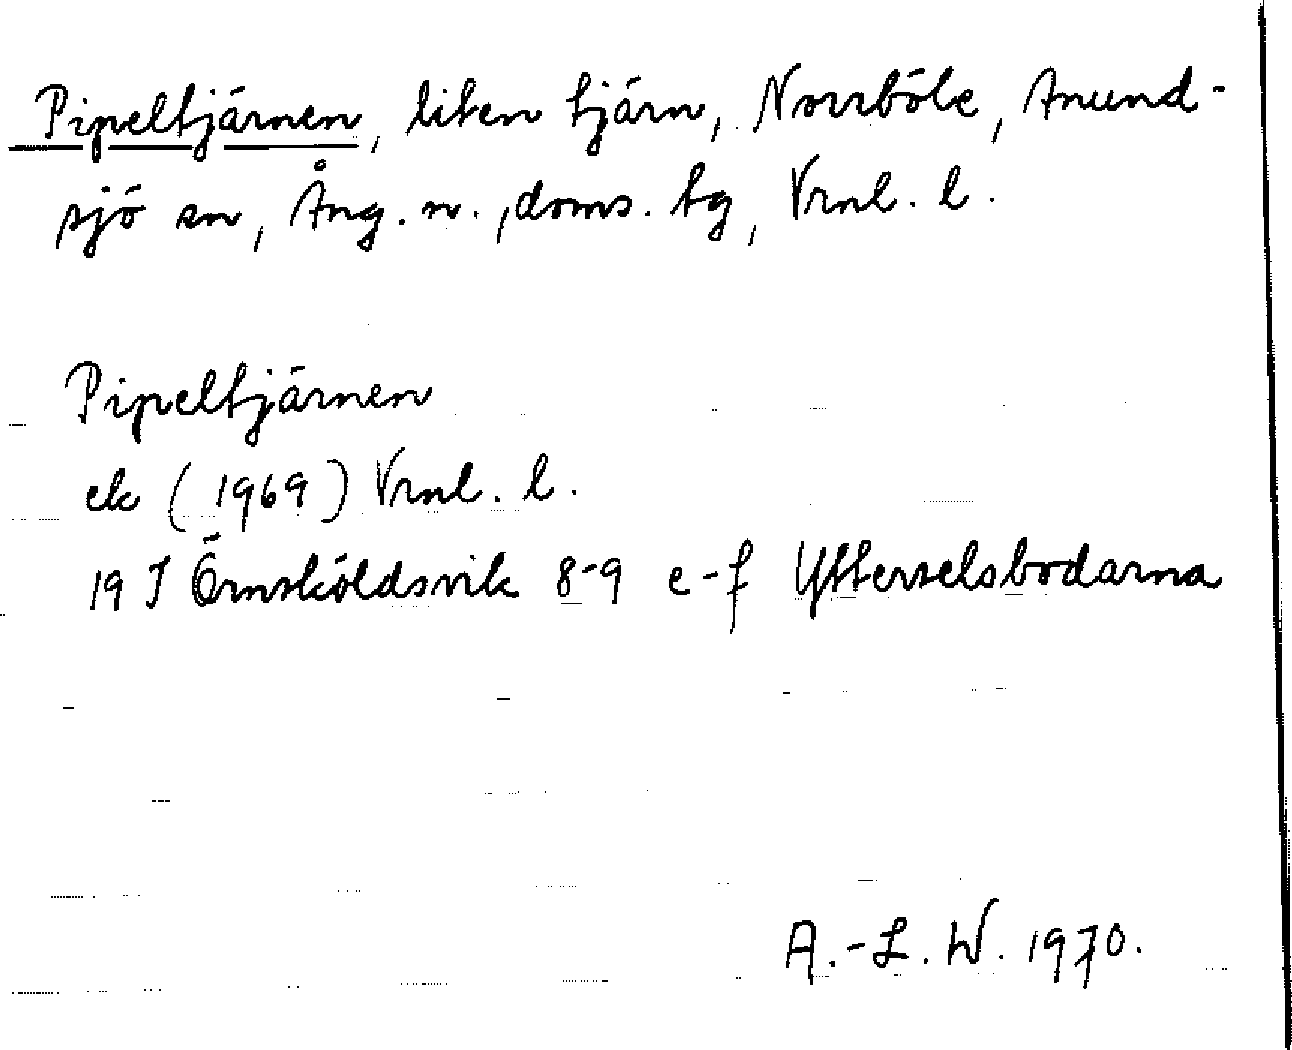 Pipeltjärnen, liten tjärn, Norrböle, Anund-
sjö sn, Ång. n., doms. tg, Vrnl. l.
Pipeltjärnen
ek (1969) Vrnl. l.
19 I Örnsköldsvik 8-9 e-f Ytterselsbodarna
A.-L. W. 1970.